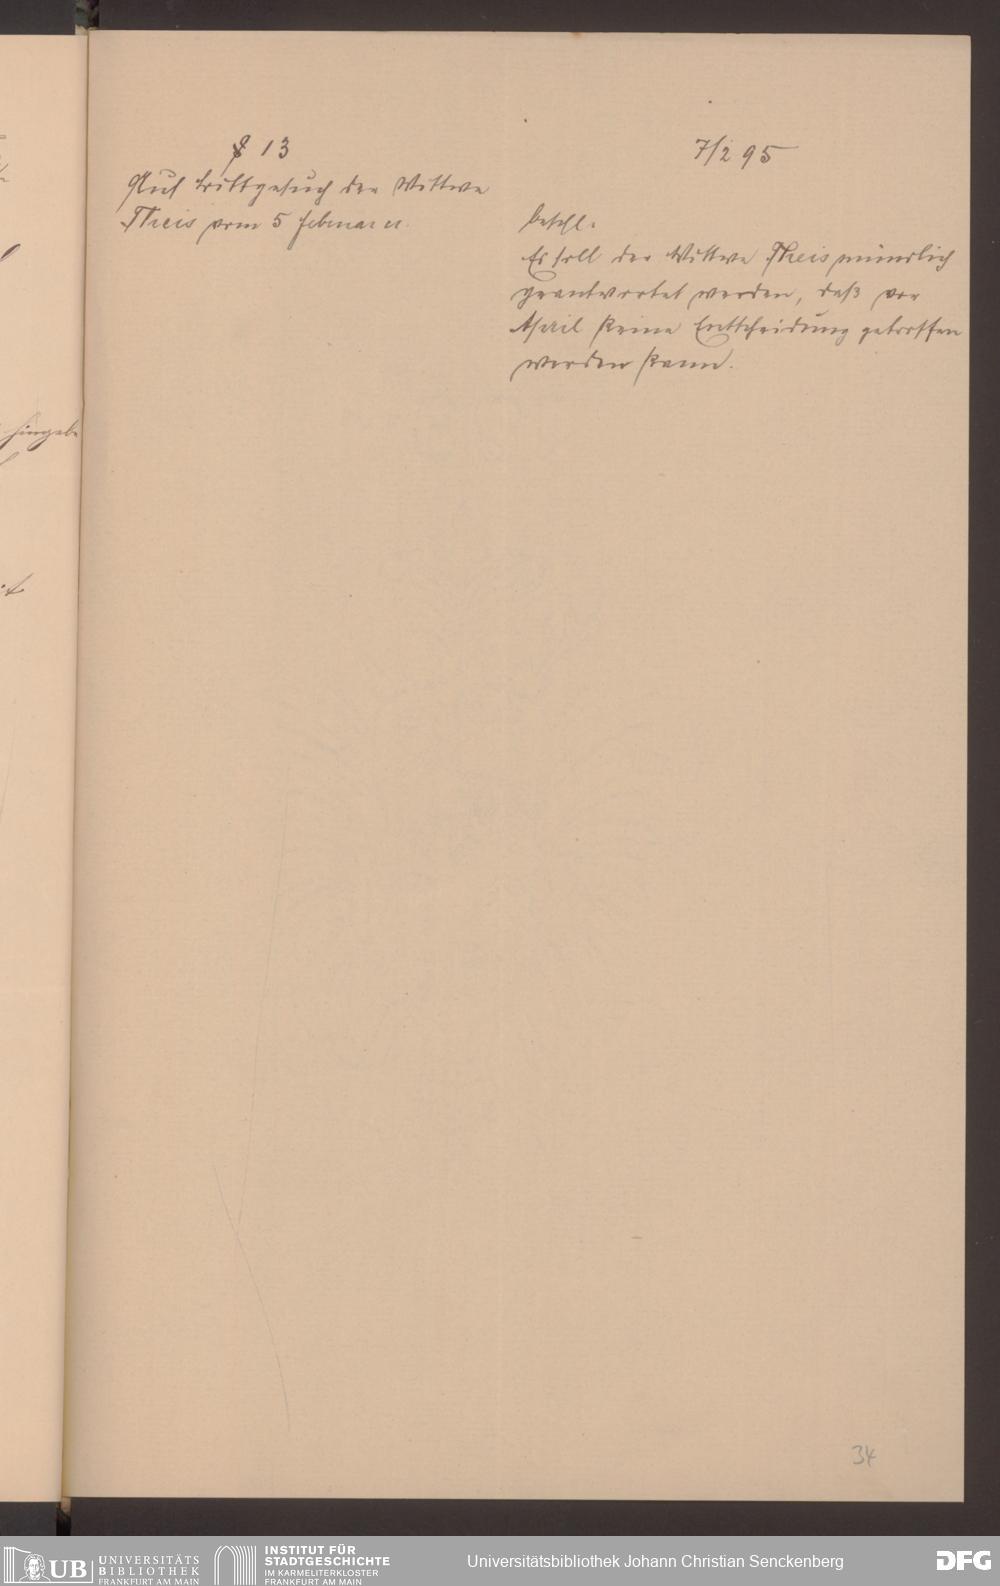 § 13
Auf Bittgesuch der Wittwe
Theis vom 5 Februar cr.
7/2 95
beschl.
Es soll der Wittwe Theis mündlich
geantwortet werden, daß vor
April keine Entscheidung getroffen
werden kann.
hingabe
34
UB UNIVERSITÄTS
BIBLIOTHEK
FRANKFURT AM MAIN
INSTITUT FÜR
STADTGESCHICHTE
IM KARMELITERKLOSTER
FRANKFURT AM MAIN
Universitätsbibliothek Johann Christian Senckenberg
DFG